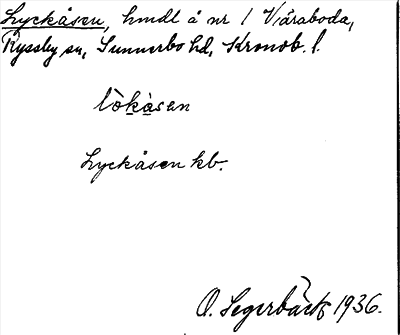 Lyckåsen, hmdl å nr 1 Våraboda,
Ryssby sn, Sunnerbo hd, Kronob. l.
lò̱kàsan
Lyckåsen kb.
O. Segerbäck 1936.